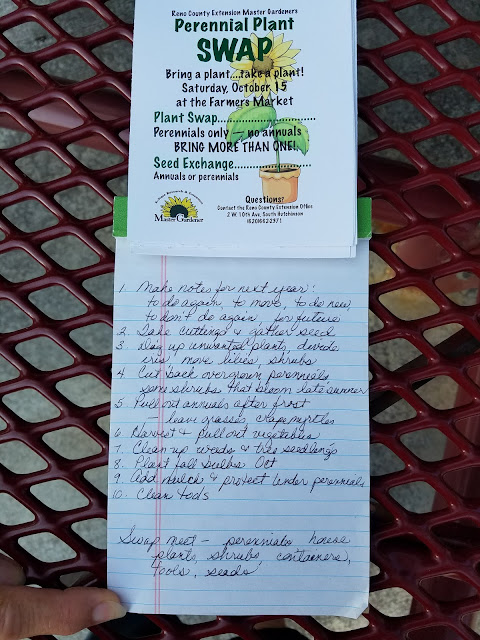 Reno County Extension Master Gardeners
Perennial Plant
SWAP
Bring a plant....take a plant!
Saturday, October 15
at the Farmers Market
Plant Swap............................
Perennials only — no annuals
BRING MORE THAN ONE!
Seed Exchange......................
Annuals or perennials
Questions?
Contact the Reno County Extension Office
2 W. 10th Ave, South Hutchinson
(620)662-2371
Master Gardener
1. Make notes for next year:
to do again, to move, to do new,
to don't do again, for future
2. Take cuttings & gather seed
3. Dig up unwanted plants, divide
iris, move lilies, shrubs
4 Cut back overgrown perennials,
some shrubs that bloom late summer
5. Pull out annuals after frost
leave grasses, crape myrtles
6 Harvest & pull out vegetables
7. Clean up weeds & tree seedlings
8. Plant fall bulbs Oct
9. Add mulch & protect tender perennials
10. Clean tools
Swap meet - perennials house
plants, shrubs, containers,
tools, seeds